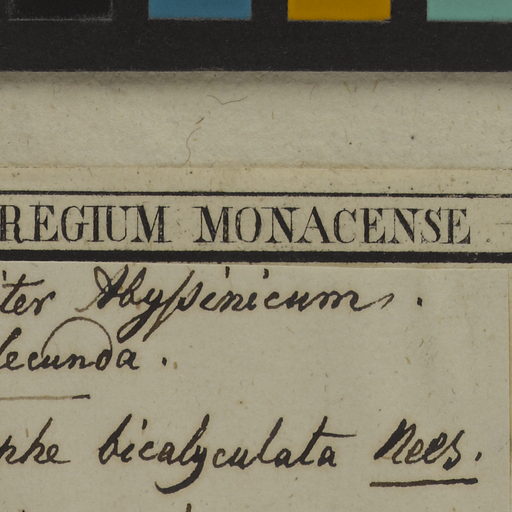 REGIUM MONACENSE
iter Abyssinicum.
Secunda.
phe bicalyculata Nees.